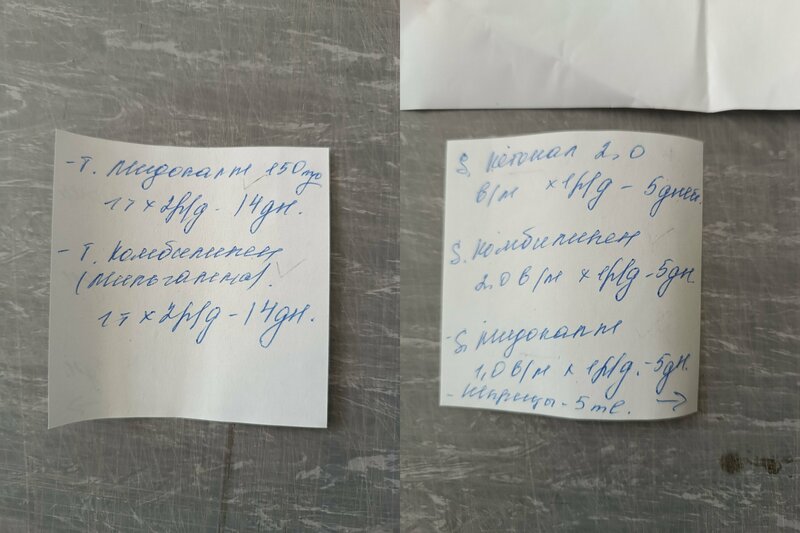 - Т. Мидокалм 150 mg
1т x 2р/д - 14дн.
- Т. Комбилипен
(Мильгамма).
1т x 2р/д - 14дн.
S. Кетонал 2,0
в/м x 1р/д - 5дней.
S. Комбилипен
2,0 в/м x 1р/д - 5дн.
- S. Мидокалм
1,0 в/м x 1р/д. - 5дн.
- шприцы - 5 →